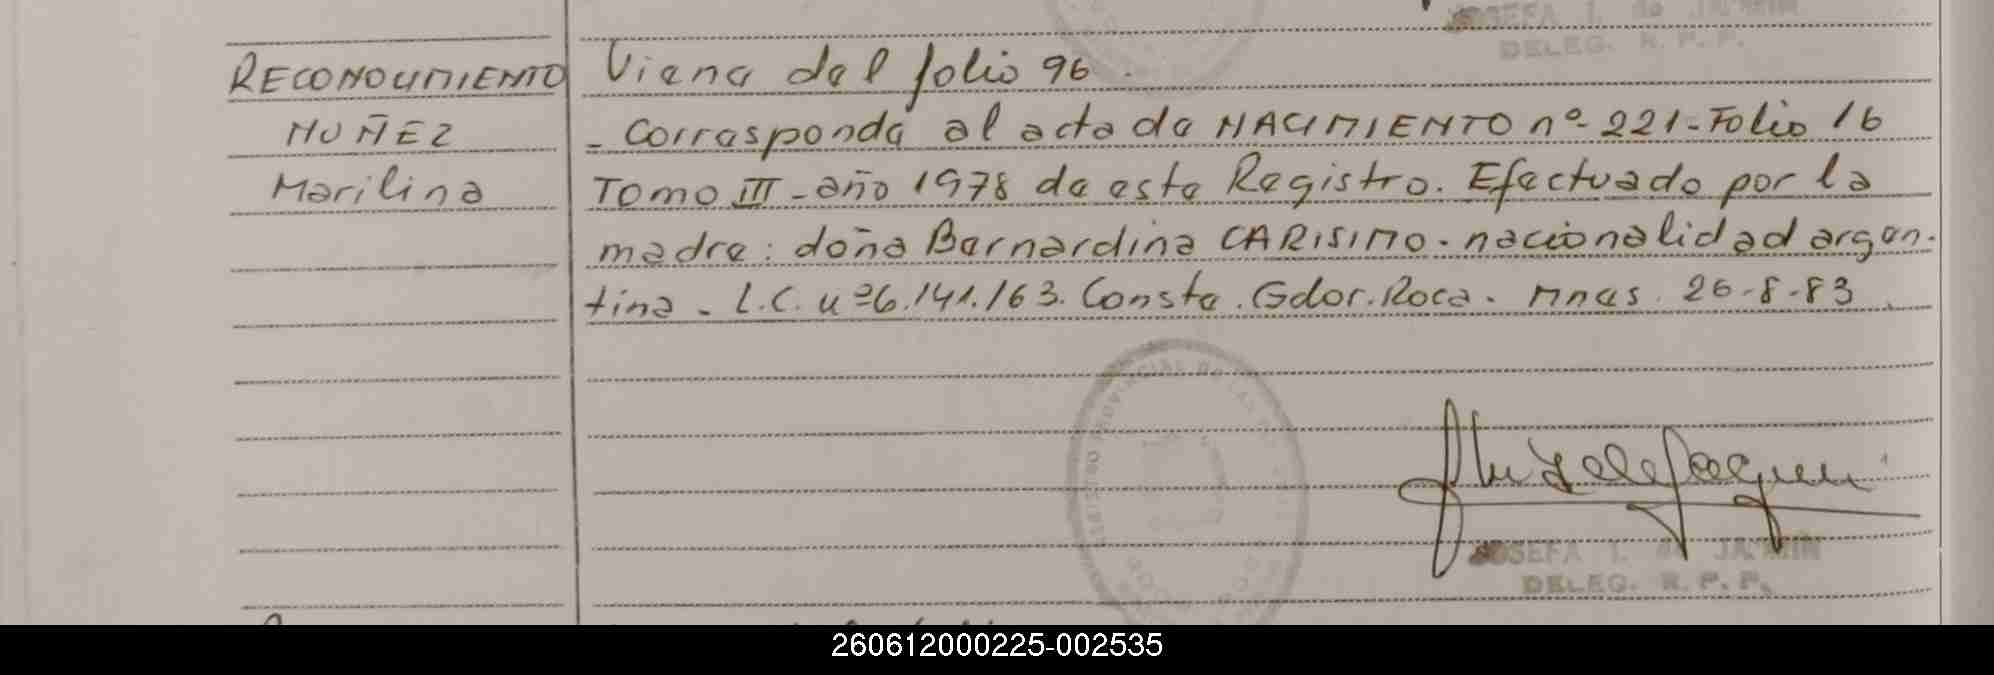 JOSEFA I. de JA
DELEG. R. P. P.
RECONOCIMIENTO
NUÑEZ
Marilina
Viene del folio 96.
- Corresponde al acta de NACIMIENTO nº 221 - Folio 16
TOMO III - año 1978 de este Registro. Efectuado por la
madre: doña Bernardina CARISIMO. nacionalidad argen-
tina - L.C. nº 6.141.163. Conste. Gdor. Roca. Mnes. 26-8-83
JOSEFA I. de JA
DELEG. R. P. P.
260612000225-002535